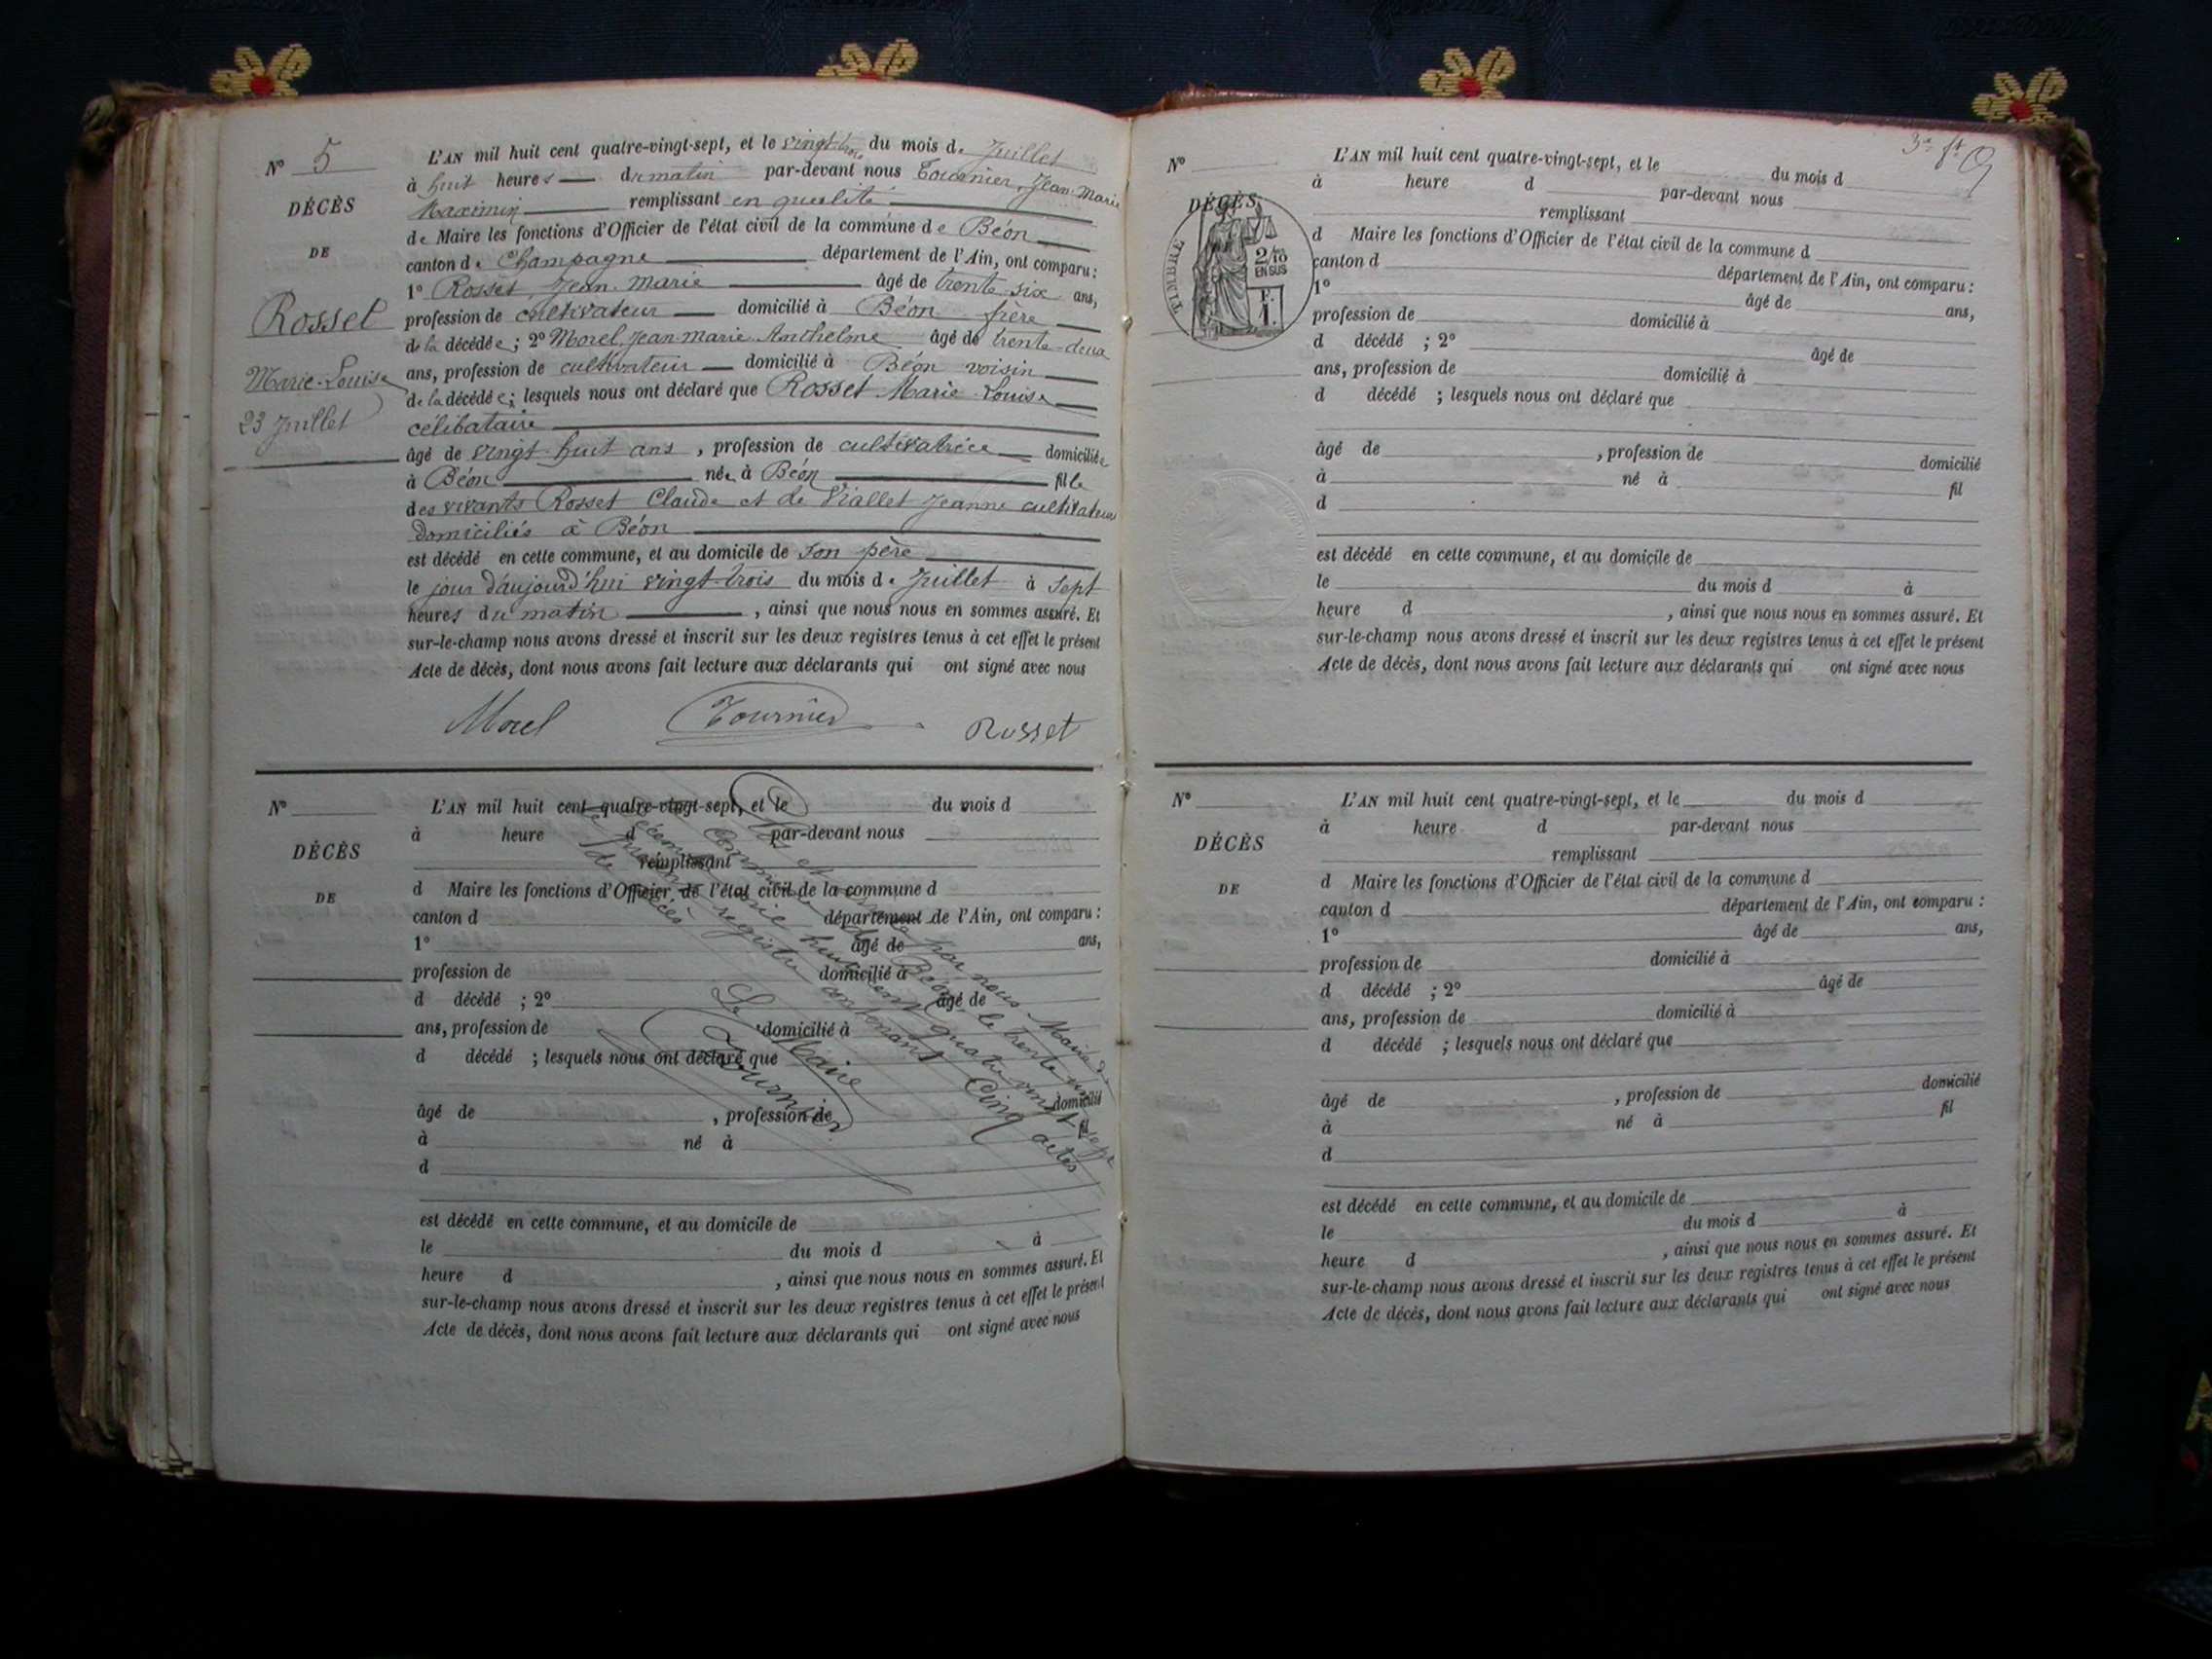 N° 5
DÉCÈS
DE
Rosset
Marie-Louise
23 Juillet
L'AN mil huit cent quatre-vingt-sept, et le vingt-trois du mois de Juillet
à huit heures du matin par-devant nous Tournier, Jean-Marie
Maximin remplissant en qualité
de Maire les fonctions d'Officier de l'état civil de la commune de Béon
canton de Champagne département de l'Ain, ont comparu :
1° Rosset Jean Marie âgé de trente-six ans,
profession de cultivateur domicilié à Béon frère
de la décédée ; 2° Morel, Jean Marie Anthelme âgé de trente-deux
ans, profession de cultivateur domicilié à Béon voisin
de la décédée ; lesquels nous ont déclaré que Rosset Marie-Louise
célibataire
âgé de vingt-huit ans , profession de cultivatrice domiciliée
à Béon née à Béon fille
des vivants Rosset Claude et de Viallet Jeanne cultivateurs
domiciliés à Béon
est décédé en cette commune, et au domicile de son père
le jour d'aujourd'hui vingt-trois du mois de Juillet à sept
heures du matin , ainsi que nous nous en sommes assuré. Et
sur-le-champ nous avons dressé et inscrit sur les deux registres tenus à cet effet le présent
Acte de décès, dont nous avons fait lecture aux déclarants qui ont signé avec nous
Morel Tournier Rosset
N°
DÉCÈS
DE
L'AN mil huit cent quatre-vingt-sept, et le du mois d
à heure d par-devant nous
remplissant
d Maire les fonctions d'Officier de l'état civil de la commune d
canton d département de l'Ain, ont comparu :
1° âgé de ans,
profession de domicilié à
d décédé ; 2° âgé de
ans, profession de domicilié à
d décédé ; lesquels nous ont déclaré que
âgé de , profession de domicilié
à né à fil
d
est décédé en cette commune, et au domicile de
le du mois d à
heure d , ainsi que nous nous en sommes assuré. Et
sur-le-champ nous avons dressé et inscrit sur les deux registres tenus à cet effet le présent
Acte de décès, dont nous avons fait lecture aux déclarants qui ont signé avec nous
par nous Maire de
la Commune de Béon, le trente un
décembre mil huit cent quatre vingt sept
le présent registre contenant Cinq actes
de décès
Le Maire
Tournier
3e ft
N°
DÉCÈS
TIMBRE
2/10
EN SUS
L'AN mil huit cent quatre-vingt-sept, et le du mois d
à heure d par-devant nous
remplissant
d Maire les fonctions d'Officier de l'état civil de la commune d
canton d département de l'Ain, ont comparu :
1° âgé de ans,
profession de domicilié à
d décédé ; 2° âgé de
ans, profession de domicilié à
d décédé ; lesquels nous ont déclaré que
âgé de , profession de domicilié
à né à fil
d
est décédé en cette commune, et au domicile de
le du mois d à
heure d , ainsi que nous nous en sommes assuré. Et
sur-le-champ nous avons dressé et inscrit sur les deux registres tenus à cet effet le présent
Acte de décès, dont nous avons fait lecture aux déclarants qui ont signé avec nous
N°
DÉCÈS
DE
L'AN mil huit cent quatre-vingt-sept, et le du mois d
à heure d par-devant nous
remplissant
d Maire les fonctions d'Officier de l'état civil de la commune d
canton d département de l'Ain, ont comparu :
1° âgé de ans,
profession de domicilié à
d décédé ; 2° âgé de
ans, profession de domicilié à
d décédé ; lesquels nous ont déclaré que
âgé de , profession de domicilié
à né à fil
d
est décédé en cette commune, et au domicile de
le du mois d à
heure d , ainsi que nous nous en sommes assuré. Et
sur-le-champ nous avons dressé et inscrit sur les deux registres tenus à cet effet le présent
Acte de décès, dont nous avons fait lecture aux déclarants qui ont signé avec nous